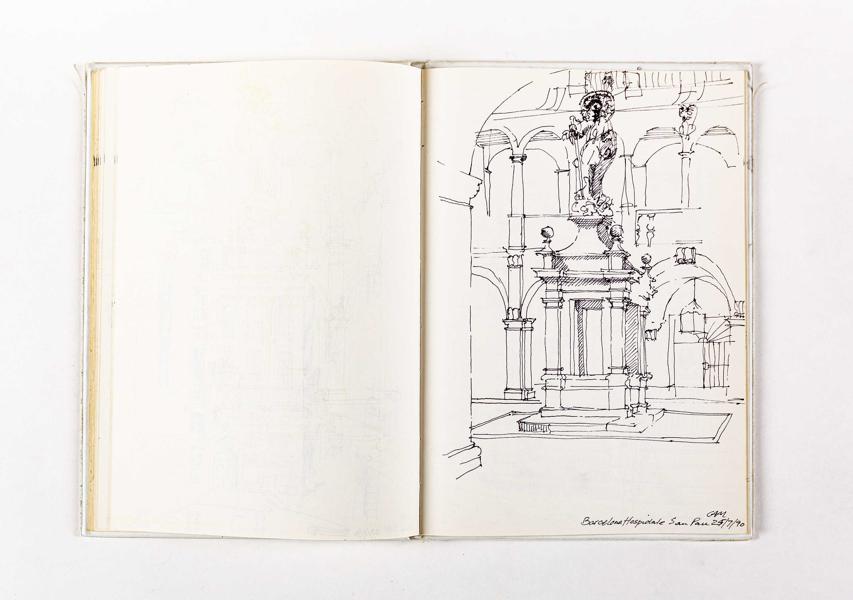 GAM
Barcelona Hospidale San Pau 25/7/90